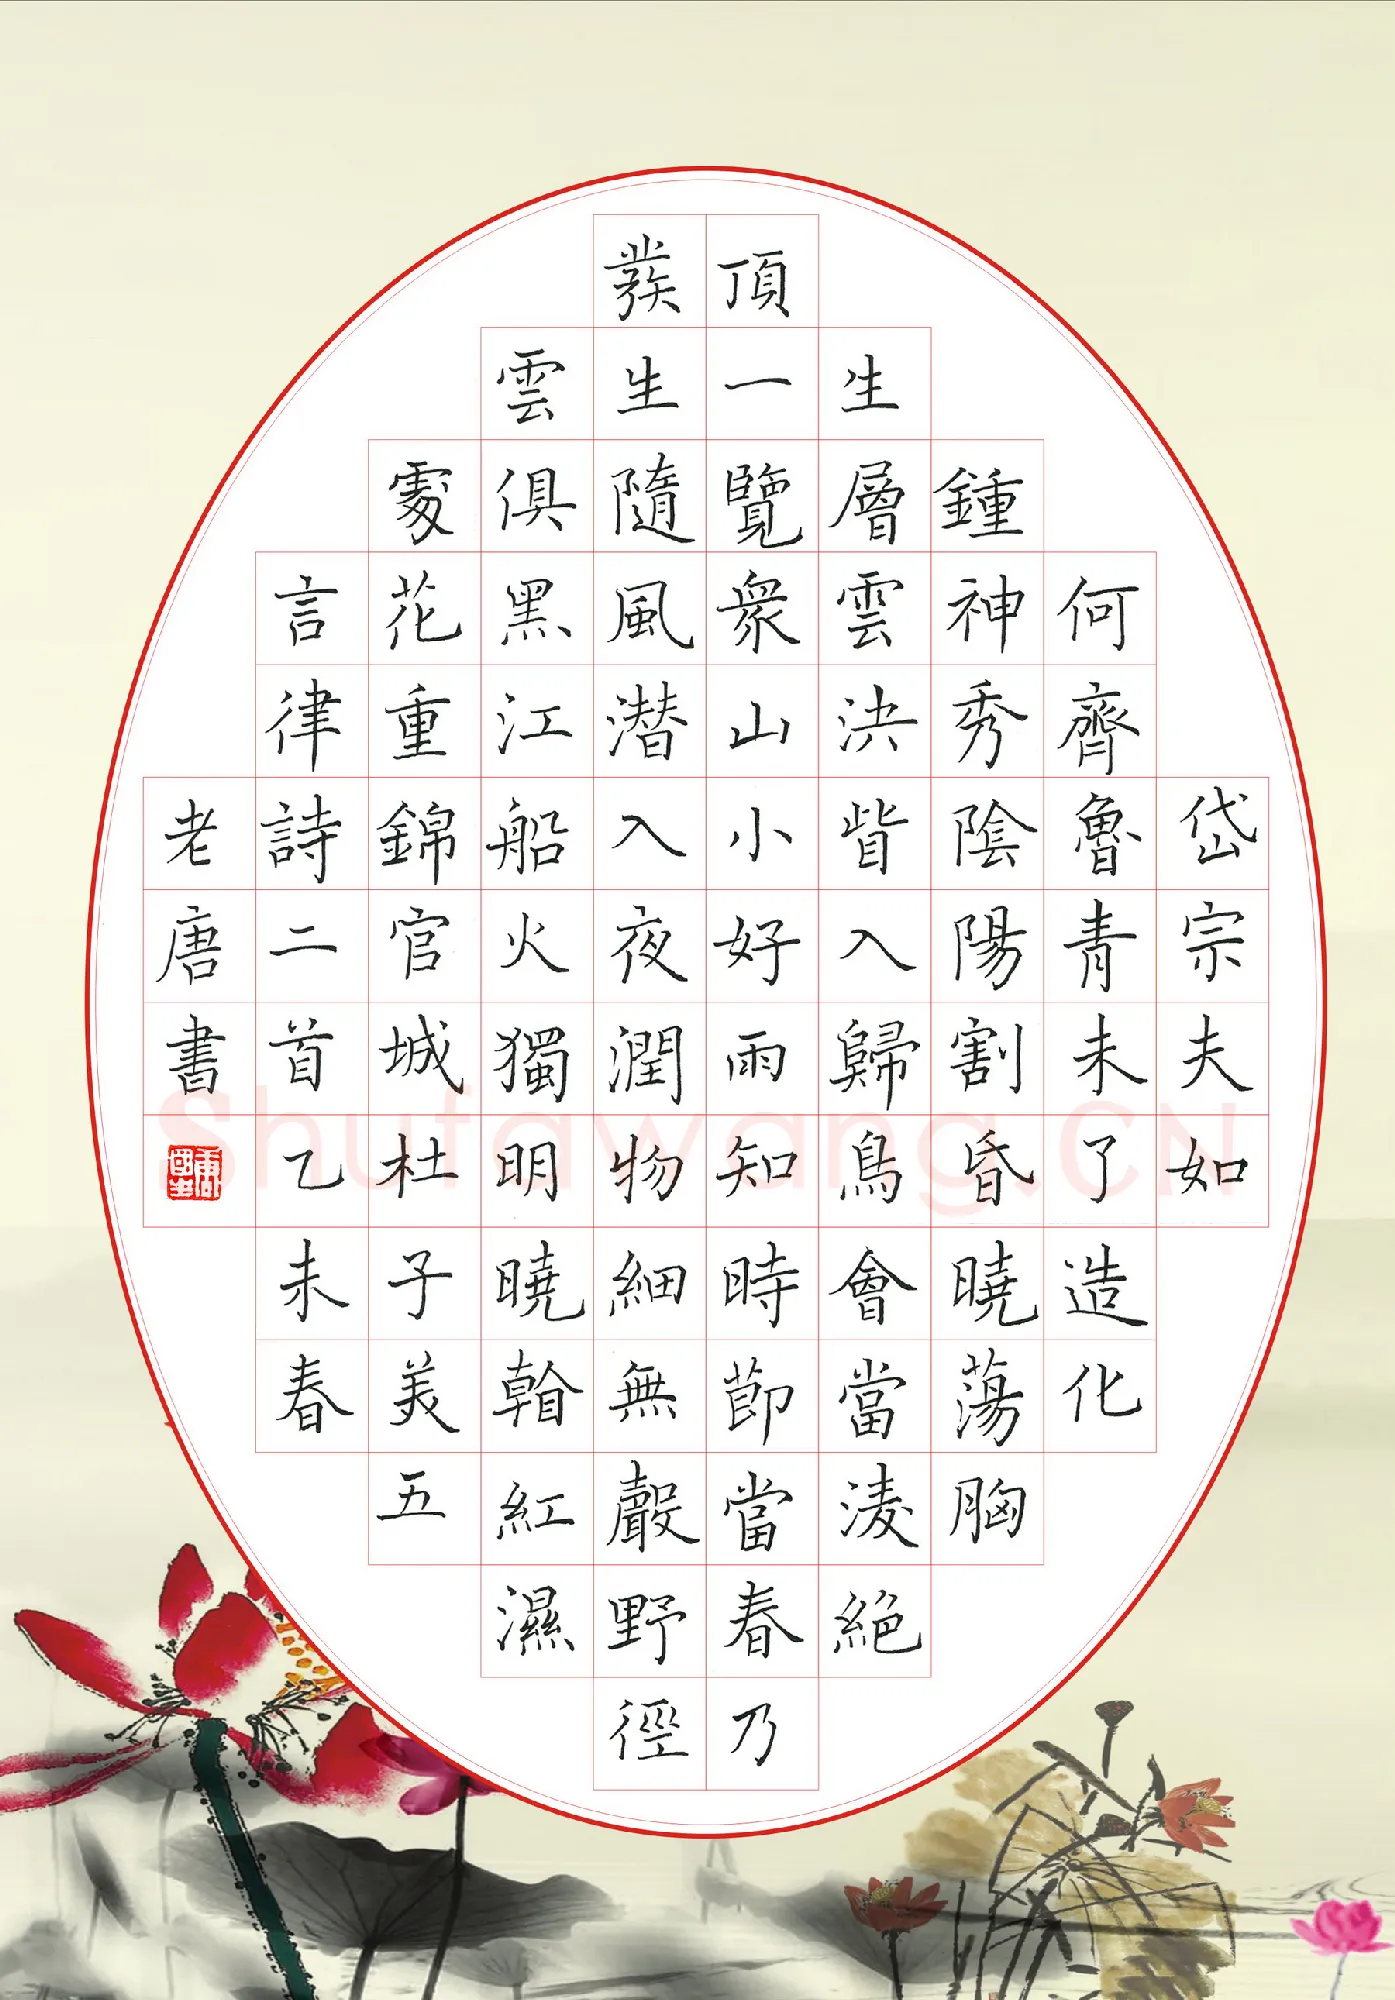 岱宗夫如
何齊魯青未了造化
鍾神秀陰陽割昏曉蕩胸
生層雲決眥入歸鳥會當淩絕
頂一覽衆山小好雨知時節當春乃
發生隨風潛入夜潤物細無聲野徑
雲俱黑江船火獨明曉看紅濕
處花重錦官城杜子美五
言律詩二首乙未春
老唐書
Shufawang.CN